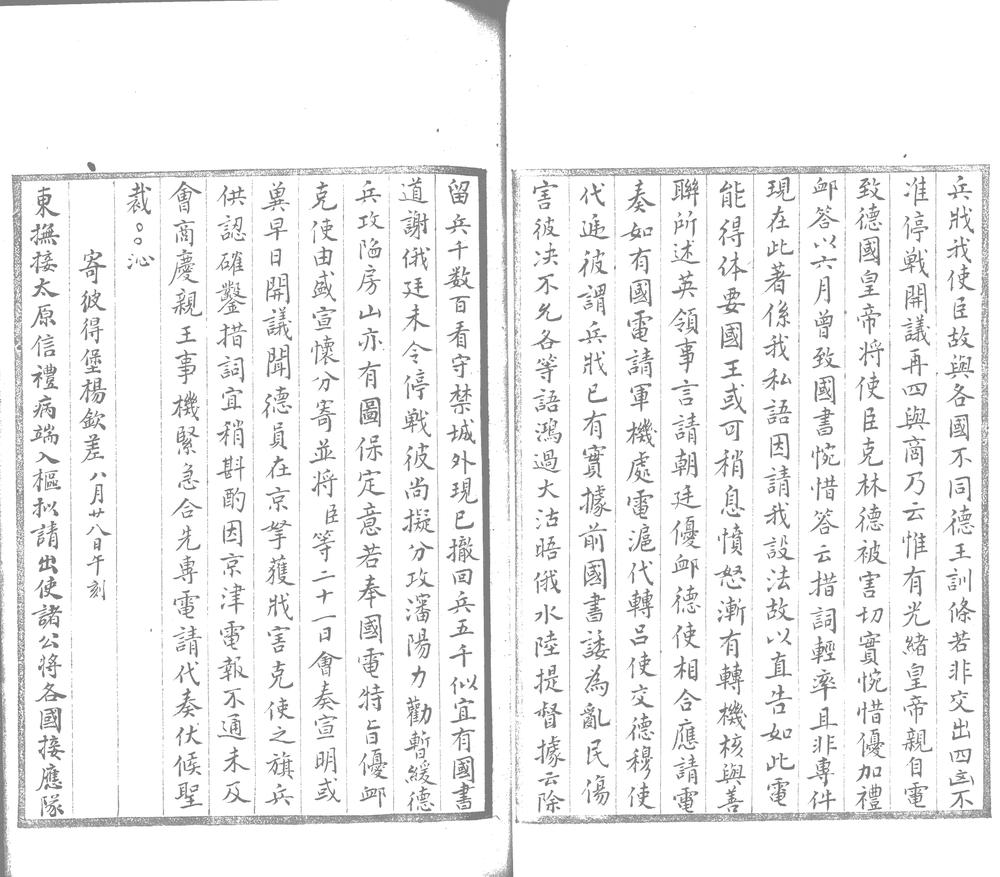 兵戕我使臣故與各國不同德王訓條若非交出四凶不
准停戰開議再四與商乃云惟有光緒皇帝親自電
致德國皇帝將使臣克林德被害切實惋惜優加禮
卹答以六月曾致國書惋惜答云措詞輕率且非專件
現在此著係我私語因請我設法故以直告如此電
能得体要國王或可稍息憤怒漸有轉機核與善
聯所述英領事言請朝廷優卹德使相合應請電
奏如有國電請軍機處電滬代轉呂使交德穆使
代遞彼謂兵戕已有實據前國書諉為亂民傷
害彼决不允各等語鴻過大沽晤俄水陸提督據云除
留兵千数百看守禁城外現已撤回兵五千似宜有國書
道謝俄廷未令停戰彼尚擬分攻瀋陽力勸暫緩德
兵攻陷房山亦有圖保定意若奉國電特旨優卹
克使由盛宣懷分寄並將臣等二十一日會奏宣明或
兾早日開議聞德員在京拏獲戕害克使之旗兵
供認確鑿措詞宜稍斟酌因京津電報不通未及
會商慶親王事機緊急合先專電請代奏伏候聖
裁。。沁
寄彼得堡楊欽差 八月廿八日午刻
東撫接太原信禮病端入樞拟請出使諸公将各國接應隊